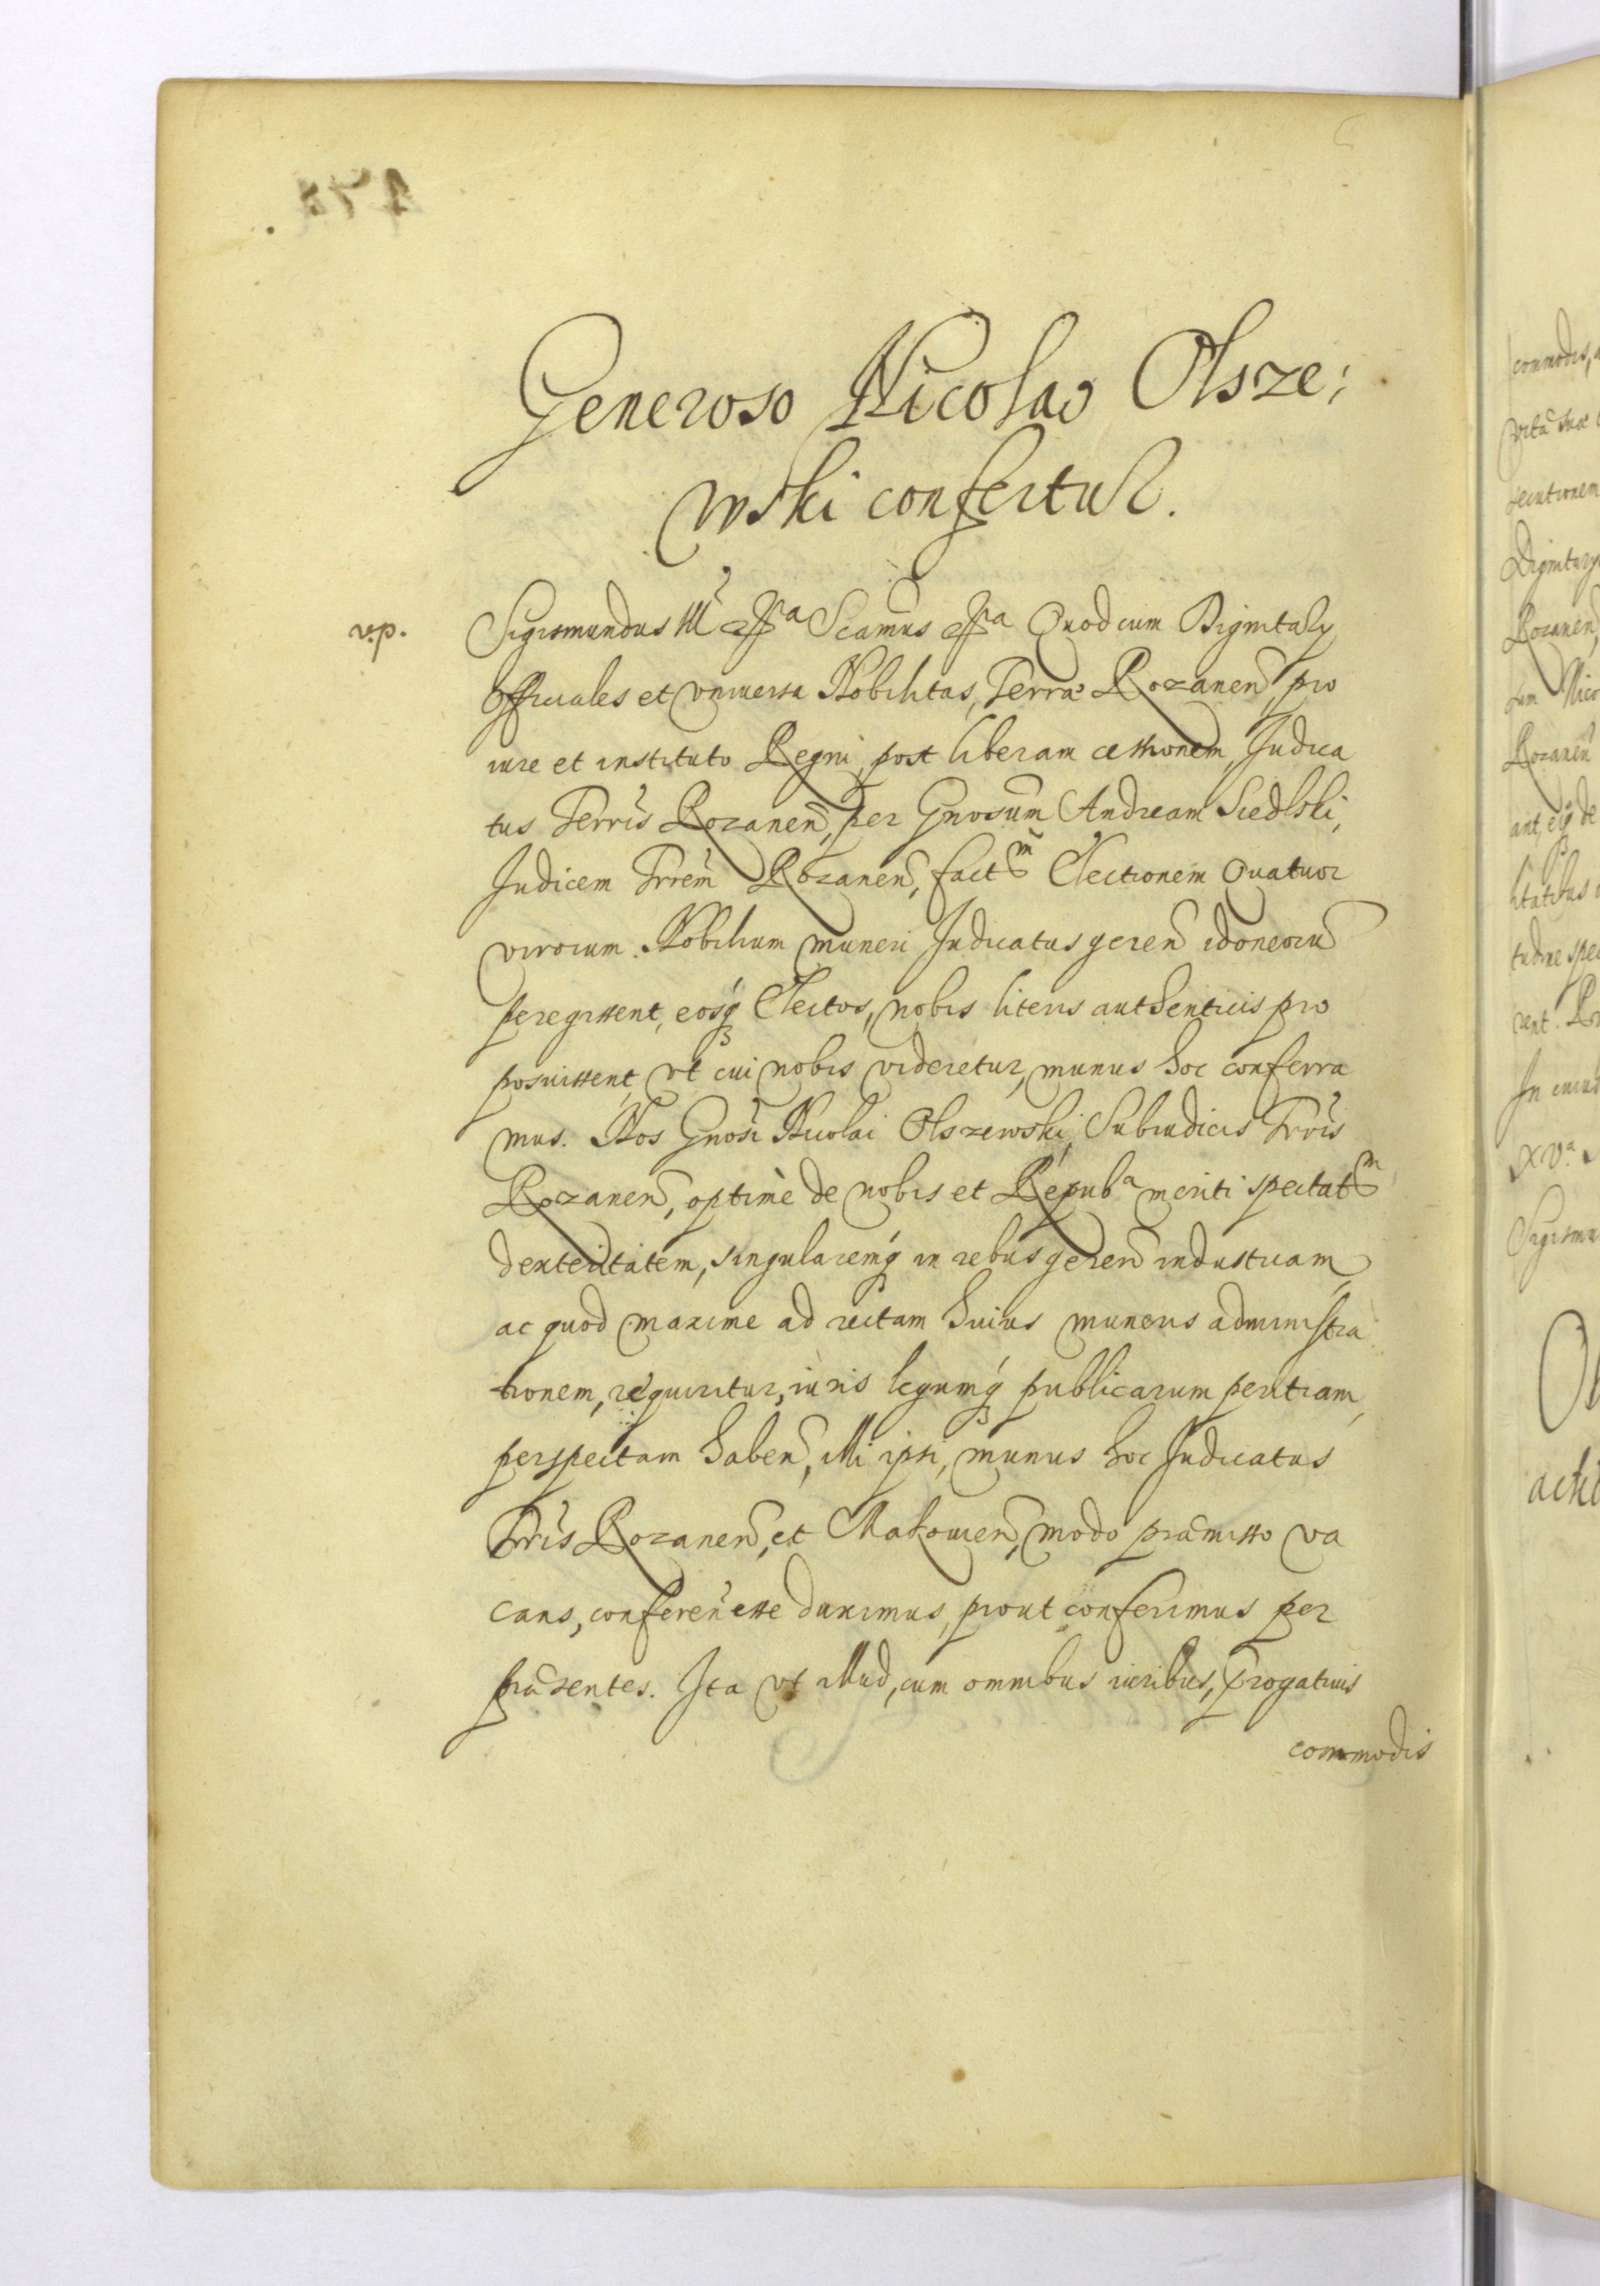 Generoso Nicolao Olsze:
wski confertur.
v.p.
Sigismundus III etca Scamus etca Quod cum Dignitarÿ
officiales et vniuersa Nobilitas, Terræ Rozanen, pro
iure et instituto Regni, post liberam cessionem, Judica
tus Terris Rozanen, per Gnosum Andream Siedlski,
Judicem Trrem Rozanen, factm Electionem Quatuor
virorum Nobilium muneri Judicatus geren idoneoru
peregissent, eosq Electos, nobis literis authenticis pro
posuissent, vt cui nobis videretur, munus hoc conferra
mus. Nos Gnosi Nicolai Olszewski, Subiudicis Trris
Rozanen, optimè de nobis et Repuba meriti spectatm
dexteritatem, singularemq in rebus geren industriam
ac quod maxime ad rectam huius muneris administra
tionem, requiritur, iuris legumq publicarum peritiam,
perspectam haben, illi ipsi, munus hoc Judicatus
Trris Rozanen, et Makouien, modo præmisso va
cans, conferen esse duximus, prout conferimus per
præsentes. Ita vt illud, cum omnibus iuribus, progatiuis
commodis